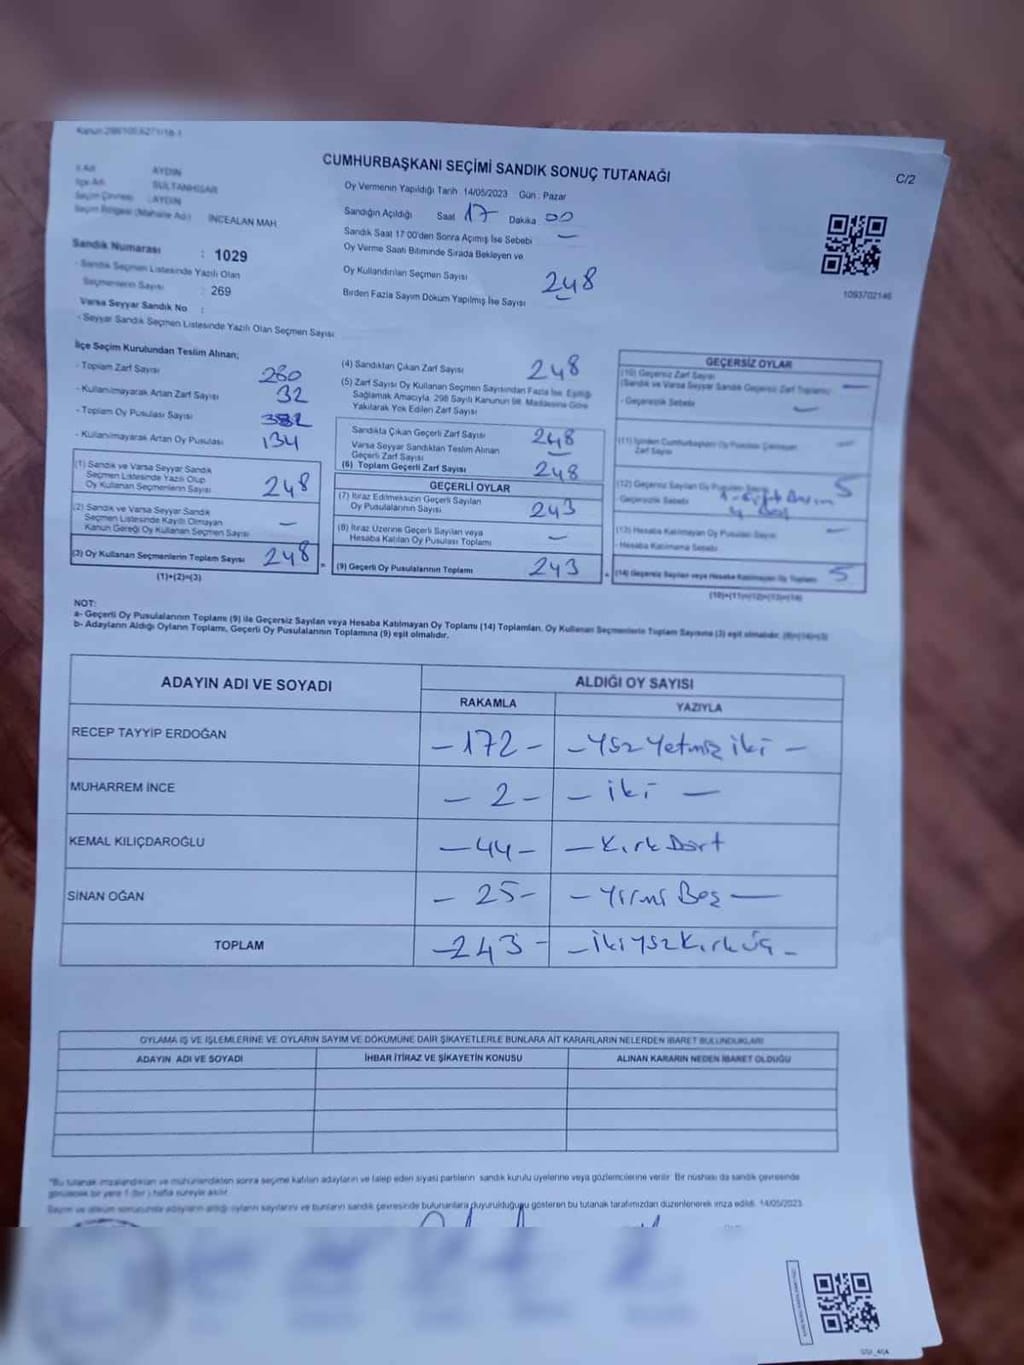 Kanun:298/100,6271/18-1
CUMHURBAŞKANI SEÇİMİ SANDIK SONUÇ TUTANAĞI
C/2
İl Adı AYDIN
İlçe Adı SULTANHİSAR
Seçim Çevresi : AYDIN
Seçim Bölgesi (Mahalle Adı) İNCEALAN MAH
Sandık Numarası : 1029
- Sandık Seçmen Listesinde Yazılı Olan
Seçmenlerin Sayısı : 269
Varsa Seyyar Sandık No :
- Seyyar Sandık Seçmen Listesinde Yazılı Olan Seçmen Sayısı
Oy Vermenin Yapıldığı Tarih 14/05/2023 Gün : Pazar
Sandığın Açıldığı Saat 17 Dakika 00
Sandık Saat 17:00'den Sonra Açılmış İse Sebebi —
Oy Verme Saati Bitiminde Sırada Bekleyen ve
Oy Kullandırılan Seçmen Sayısı 248
Birden Fazla Sayım Döküm Yapılmış İse Sayısı —
1093702146
İlçe Seçim Kurulundan Teslim Alınan;
- Toplam Zarf Sayısı 280
- Kullanılmayarak Artan Zarf Sayısı 32
- Toplam Oy Pusulası Sayısı
- Kullanılmayarak Artan Oy Pusulası 134
(1) Sandık ve Varsa Seyyar Sandık
Seçmen Listesinde Yazılı Olup
Oy Kullanan Seçmenlerin Sayısı 248
(2) Sandık ve Varsa Seyyar Sandık
Seçmen Listesinde Kayıtlı Olmayan
Kanun Gereği Oy Kullanan Seçmen Sayısı —
(3) Oy Kullanan Seçmenlerin Toplam Sayısı 248
(1)+(2)=(3)
(4) Sandıktan Çıkan Zarf Sayısı 248
(5) Zarf Sayısı Oy Kullanan Seçmen Sayısından Fazla İse, Eşitliği
Sağlamak Amacıyla, 298 Sayılı Kanunun 98. Maddesine Göre
Yakılarak Yok Edilen Zarf Sayısı
Sandıkta Çıkan Geçerli Zarf Sayısı 248
Varsa Seyyar Sandıktan Teslim Alınan
Geçerli Zarf Sayısı —
(6) Toplam Geçerli Zarf Sayısı 248
GEÇERLİ OYLAR
(7) İtiraz Edilmeksizin Geçerli Sayılan
Oy Pusulalarının Sayısı 243
(8) İtiraz Üzerine Geçerli Sayılan veya
Hesaba Katılan Oy Pusulası Toplamı —
(9) Geçerli Oy Pusulalarının Toplamı 243
GEÇERSİZ OYLAR
(10) Geçersiz Zarf Sayısı
(Sandık ve Varsa Seyyar Sandık Geçersiz Zarf Toplamı) —
- Geçersizlik Sebebi —
(11) İçinden Cumhurbaşkanı Oy Pusulası Çıkmayan
Zarf Sayısı —
(12) Geçersiz Sayılan Oy Pusulası Sayısı 5
- Geçersizlik Sebebi
(13) Hesaba Katılmayan Oy Pusulası Sayısı —
- Hesaba Katılmama Sebebi
(14) Geçersiz Sayılan veya Hesaba Katılmayan Oy Toplamı 5
(10)+(11)+(12)+(13)=(14)
NOT:
a- Geçerli Oy Pusulalarının Toplamı (9) ile Geçersiz Sayılan veya Hesaba Katılmayan Oy Toplamı (14) Toplamları, Oy Kullanan Seçmenlerin Toplam Sayısına (3) eşit olmalıdır. (9)+(14)=(3)
b- Adayların Aldığı Oyların Toplamı, Geçerli Oy Pusulalarının Toplamına (9) eşit olmalıdır.
ADAYIN ADI VE SOYADI ALDIĞI OY SAYISI
RAKAMLA YAZIYLA
RECEP TAYYİP ERDOĞAN – 172 – – Yüz Yetmiş iki –
MUHARREM İNCE – 2 – – iki –
KEMAL KILIÇDAROĞLU – 44 – – Kırk Dört
SİNAN OĞAN – 25 – – Yirmi Beş –
TOPLAM – 243 – – iki yüz Kırk üç –
OYLAMA İŞ VE İŞLEMLERİNE VE OYLARIN SAYIM VE DÖKÜMÜNE DAİR ŞİKAYETLERLE BUNLARA AİT KARARLARIN NELERDEN İBARET BULUNDUKLARI
ADAYIN ADI VE SOYADI İHBAR İTİRAZ VE ŞİKAYETİN KONUSU ALINAN KARARIN NEDEN İBARET OLDUĞU
*Bu tutanak imzalandıktan ve mühürlendikten sonra seçime katılan adayların ve talep eden siyasi partilerin sandık kurulu üyelerine veya gözlemcilerine verilir. Bir nüshası da sandık çevresinde
görülecek bir yere 1 (bir) hafta süreyle asılır.
Seçim ve döküm sonucunda adayların aldığı oyların sayılarını ve bunların sandık çevresinde bulunanlara duyurulduğunu gösteren bu tutanak tarafımızdan düzenlenerek imza edildi. 14/05/2023